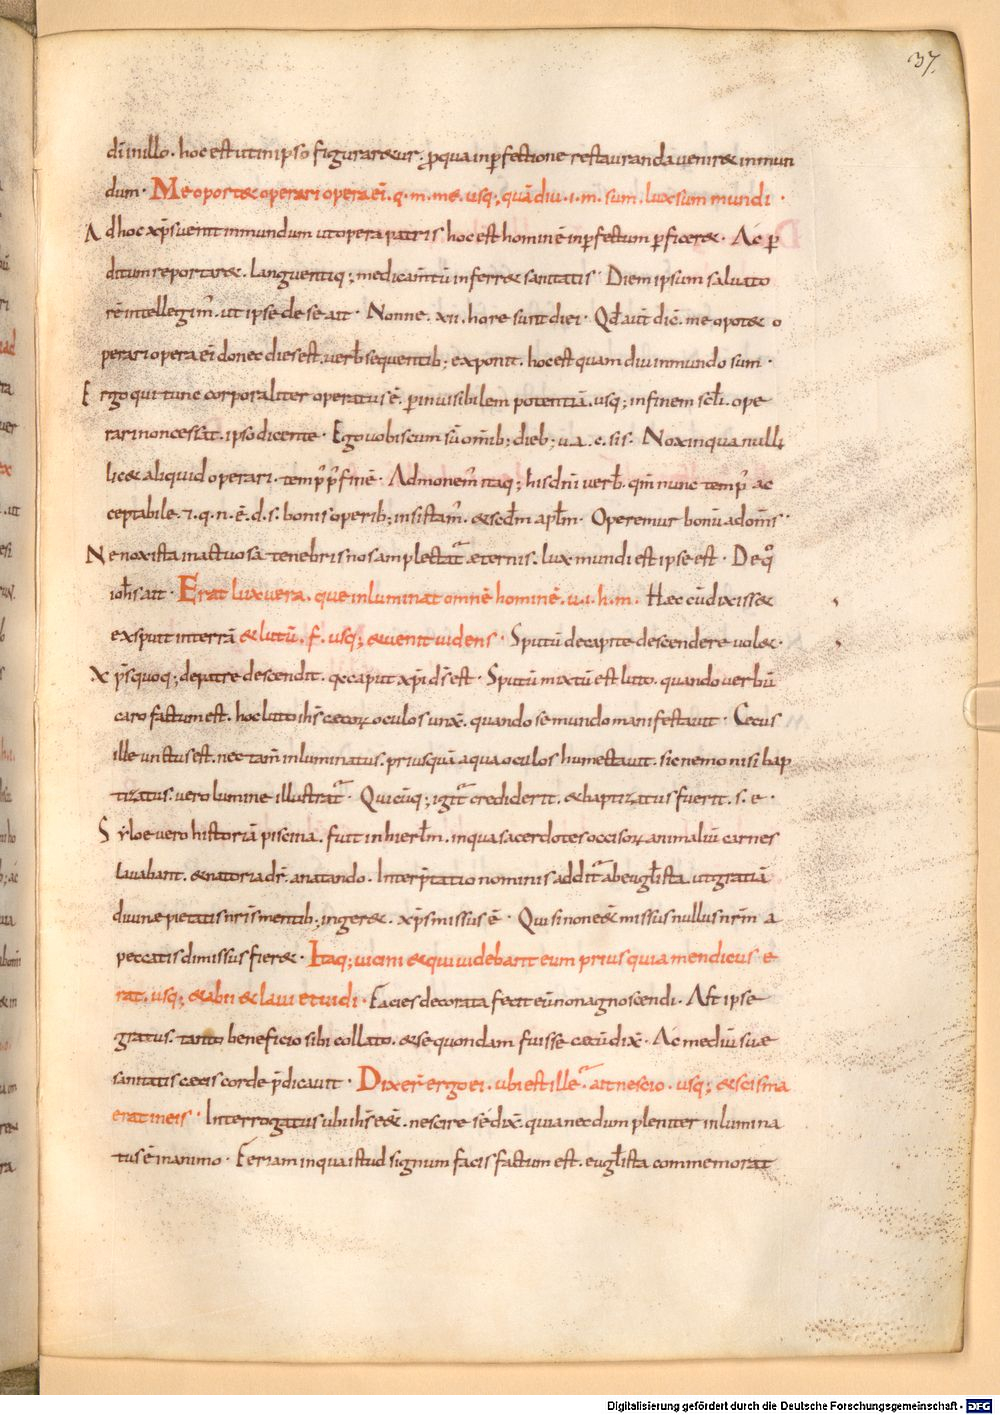 37.
di in illo. hoc est ut in ipso figuraretur. p qua inpfectione restauranda veniret in mun
dum. Me oportet operari opera ei. q. m. me. usq; quādiu. i. m. sum. lux sum mundi.
Ad hoc xps uenit in mundum ut opera patris hoc est hominē inpfectum pficeret. Ac p
ditum reportaret. languentiq; medicam̄tū inferret sanitatis. Diem ipsum saluato
rē intellegim̄. ut ipse de se ait. Nonne. xii. hore sunt diei. Qd aut dic̄. me oportet o
perari opera ei donec dies est. verb sequentib; exponit. hoc est quam diu in mundo sum.
Ergo qui tunc corporaliter operatus ē. p inuisibilem potentiā. usq; in finem scli. ope
rari non cessat. ipso dicente. Ego uobiscum sū omib; dieb; u. a. c. s. s. Nox in qua nulli
licet aliquid operari. temp p̄ finē. Admonem̄ itaq; his dni verb. qm nunc temp ac
ceptabile. 7. q. n. ē. d. s. bonis operib; insistam̄. et scdm aplm. Operemur bonū ad om̄s.
Ne nox ista inactuosa tenebris nos amplectat aeternis. lux mundi est ipse est. De q
iohs ait. Erat lux vera. que inluminat omnē hominē. u. i. h. m. Haec cū dixisset
exspuit in terrā et lutū. f. usq; et uenit uidens. Sputū de capite descendere uolet.
Xps quoq; de patre descendit. q̄ caput xpi ds est. Sputū mixtū est luto. quando verbū
caro factum est. hoc luto ihs cecor oculos unx̄. quando se mundo manifestauit. Cecus
ille unctus est. nec tam̄ inluminatus. priusquā aqua oculos humectauit. sic nemo nisi bap
tizatus. vero lumine illustrat. Quicūq; igit crediderit. et baptizatus fuerit. s. e.
Syloe vero historiā piscina. fuit in hierlm. in qua sacerdotes occisor animaliū carnes
lavabant. et natoria dr̄. a natando. Interp̄tatio nominis addit ab euglista. ut gratiā
diuinae pietatis nris mentib; ingeret. xps missus ē. Qui si non eēt missus nullus nrm a
peccatis dimissus fieret. Itaq; uicini et qui uidebant eum prius quia mendicus e
rat. usq; et abii et laui et uidi. Facies decorata fecit eū non agnoscendi. At ipse
gratus. tanto beneficio sibi collato. et se quondam fuisse caecū dix̄. Ac mediū suae
sanitatis caecis corde p̄dicauit. Dixer̄ ergo ei. ubi est ille. ait nescio. usq; et scisma
erat in eis. Interrogatus ubi ihs eēt. nescire se dix̄. quia necdum pleniter inlumina
tus ē in animo. Feriam in qua istud signum facis factum est. euglista commemorat
Digitalisierung gefördert durch die Deutsche Forschungsgemeinschaft - DFG